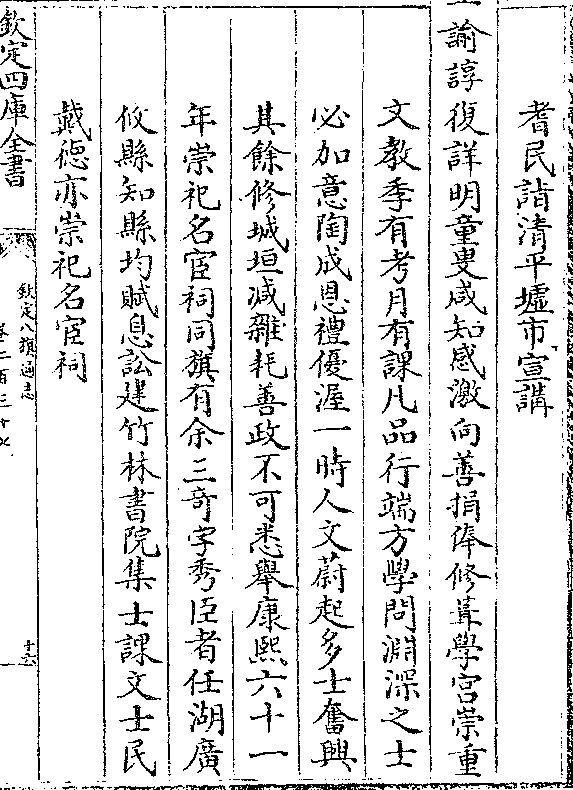 耆民詣清平墟市宣講
諭諄復詳明童叟咸知感激向善捐俸修葺學宫崇重
文教季有考月有課凡品行端方學問淵深之士
必加意陶成恩禮優渥一時人文蔚起多士奮興
其餘修城垣减雜耗善政不可悉舉康熙六十一
年崇祀名宦祠同旗有余三奇字秀臣者任湖廣
攸縣知縣均賦息訟建竹林書院集士課文士民
戴德亦崇祀名宦祠
欽定四庫全書
欽定八旗通志
卷二百三十七
十六